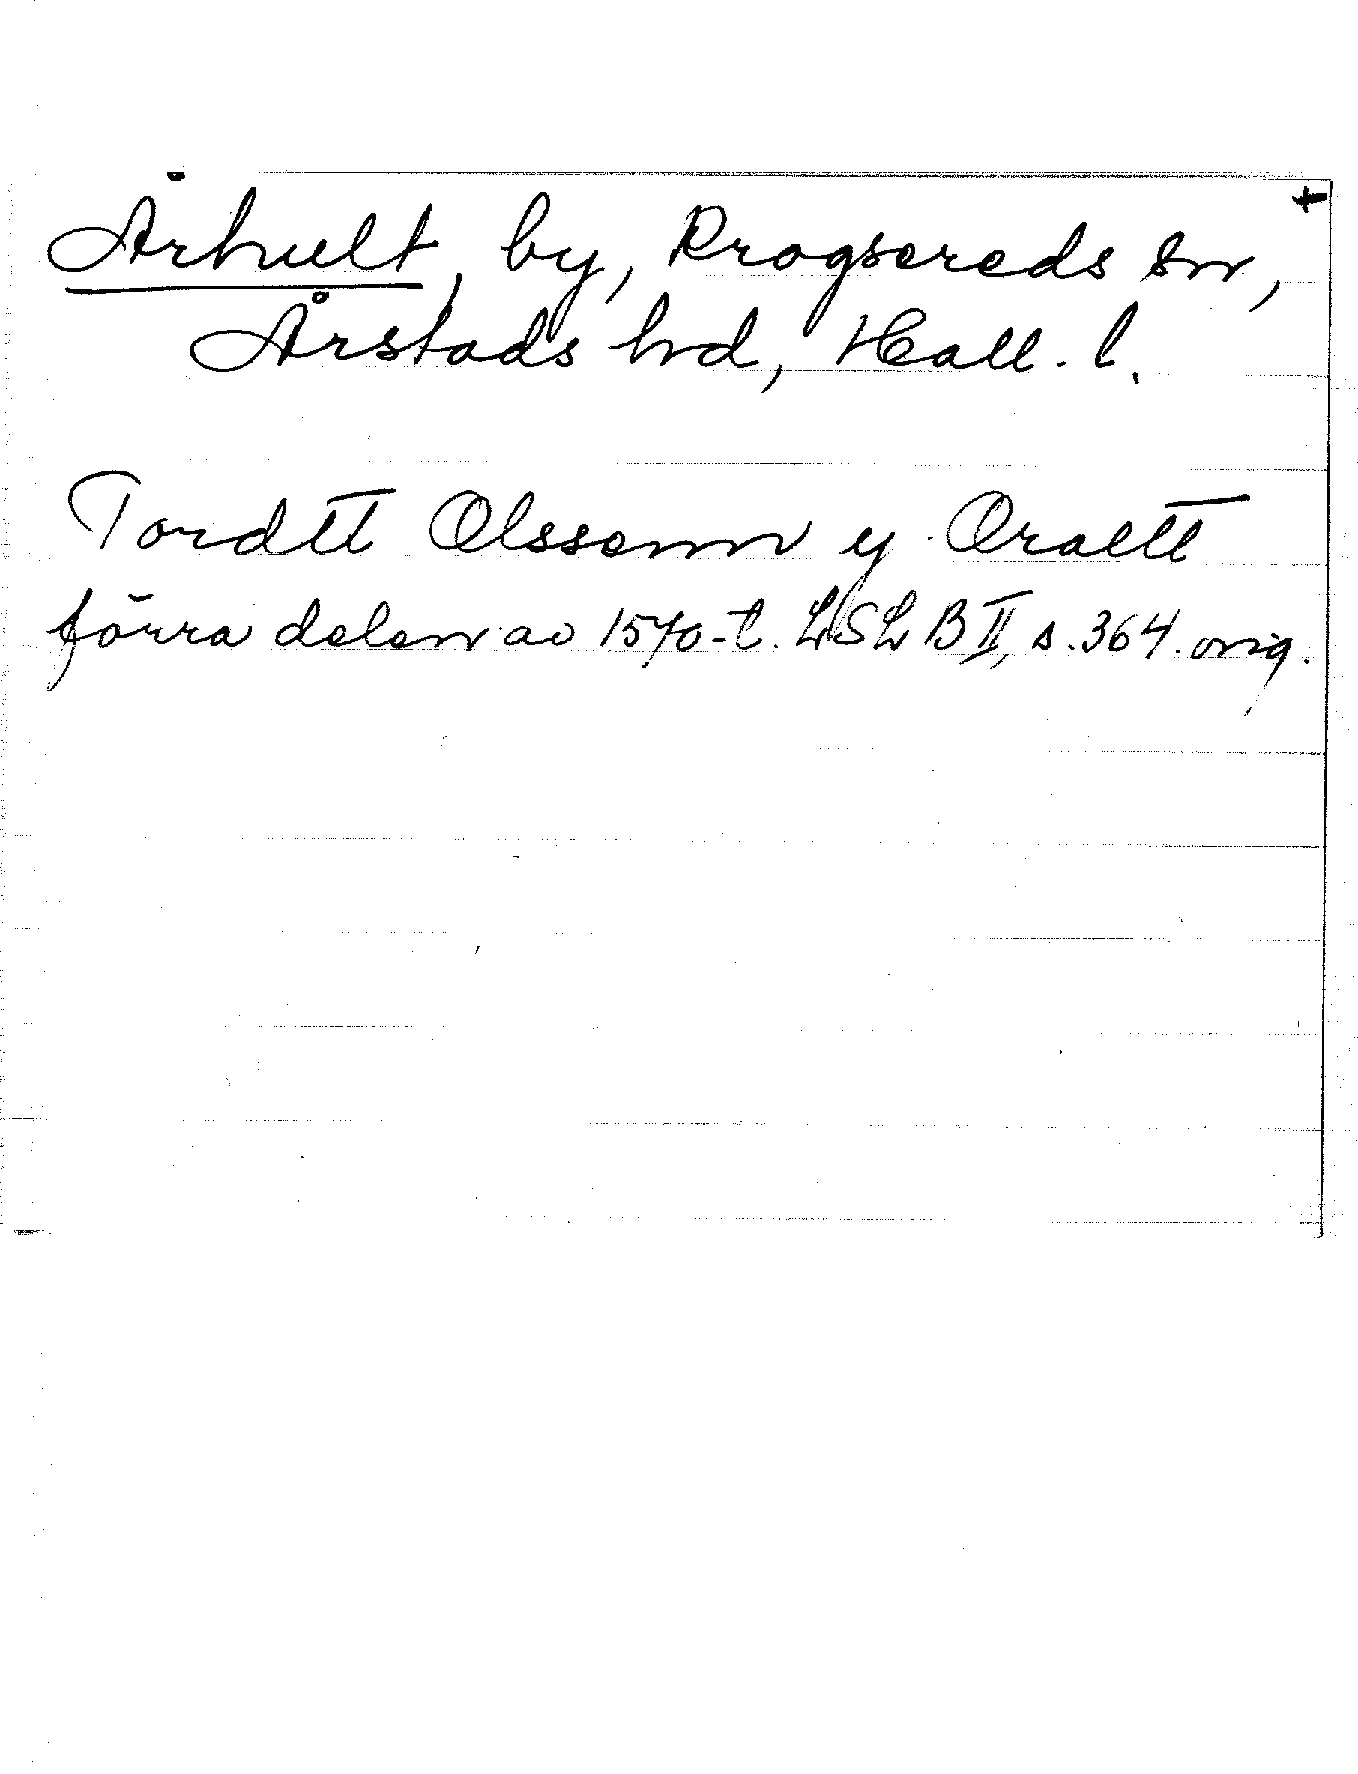 Århult, by, Krogsereds sn,
Årstads hd, Hall. l.
Tordtt Olssenn y Oraltt
förra delen av 1570-t. LSL B II, s. 364. orig.